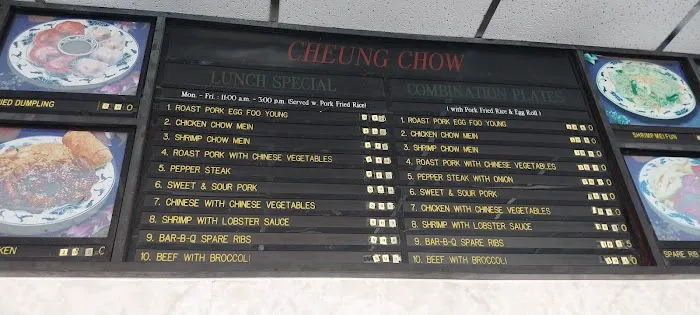 CHEUNG CHOW
LUNCH SPECIAL
Mon. - Fri. : 11:00 a.m. - 3:00 p.m. (Served w. Pork Fried Rice)
1. ROAST PORK EGG FOO YOUNG
2. CHICKEN CHOW MEIN
3. SHRIMP CHOW MEIN
4. ROAST PORK WITH CHINESE VEGETABLES
5. PEPPER STEAK
6. SWEET & SOUR PORK
7. CHINESE WITH CHINESE VEGETABLES
8. SHRIMP WITH LOBSTER SAUCE
9. BAR-B-Q SPARE RIBS
10. BEEF WITH BROCCOLI
COMBINATION PLATES
( with Pork Fried Rice & Egg Roll )
1. ROAST PORK EGG FOO YOUNG
2. CHICKEN CHOW MEIN
3. SHRIMP CHOW MEIN
4. ROAST PORK WITH CHINESE VEGETABLES
5. PEPPER STEAK WITH ONION
6. SWEET & SOUR PORK
7. CHICKEN WITH CHINESE VEGETABLES
8. SHRIMP WITH LOBSTER SAUCE
9. BAR-B-Q SPARE RIBS
10. BEEF WITH BROCCOLI
DUMPLING
SHRIMP MEI FUN
SPARE RIB